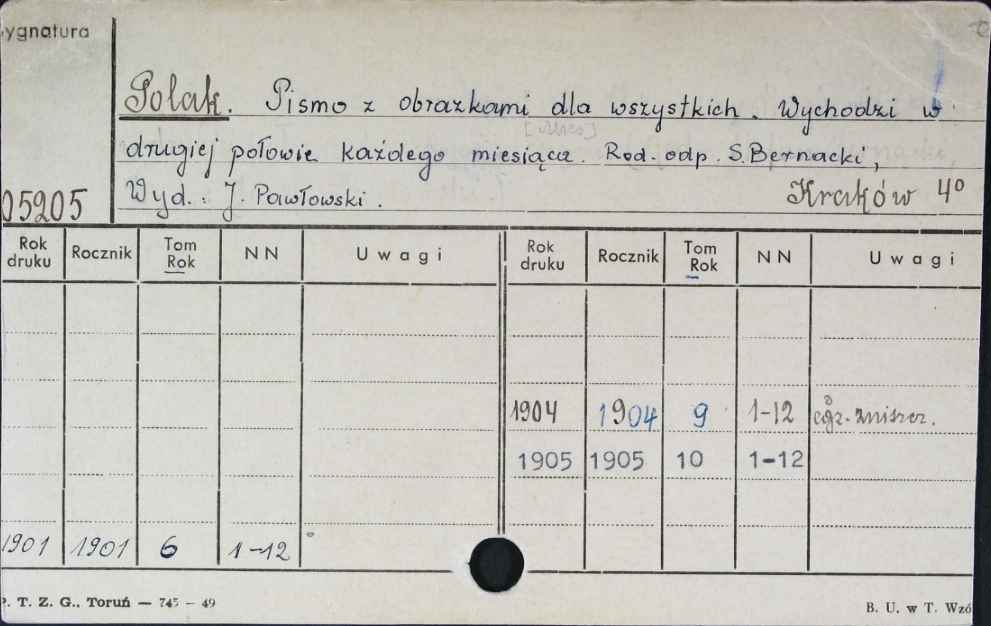 ygnatura
Polak. Pismo z obrazkami dla wszystkich. Wychodzi w
drugiej połowie każdego miesiąca. Red. odp. S. Bernacki,
05205 Wyd.: J. Pawłowski. Kraków 4°
Rok druku Rocznik Tom Rok NN Uwagi Rok druku Rocznik Tom Rok NN Uwagi
1904 1904 9 1-12 egz. zniszcz.
1905 1905 10 1-12
1901 1901 6 1-12
P. T. Z. G., Toruń — 745 — 49 B. U. w T. Wzó